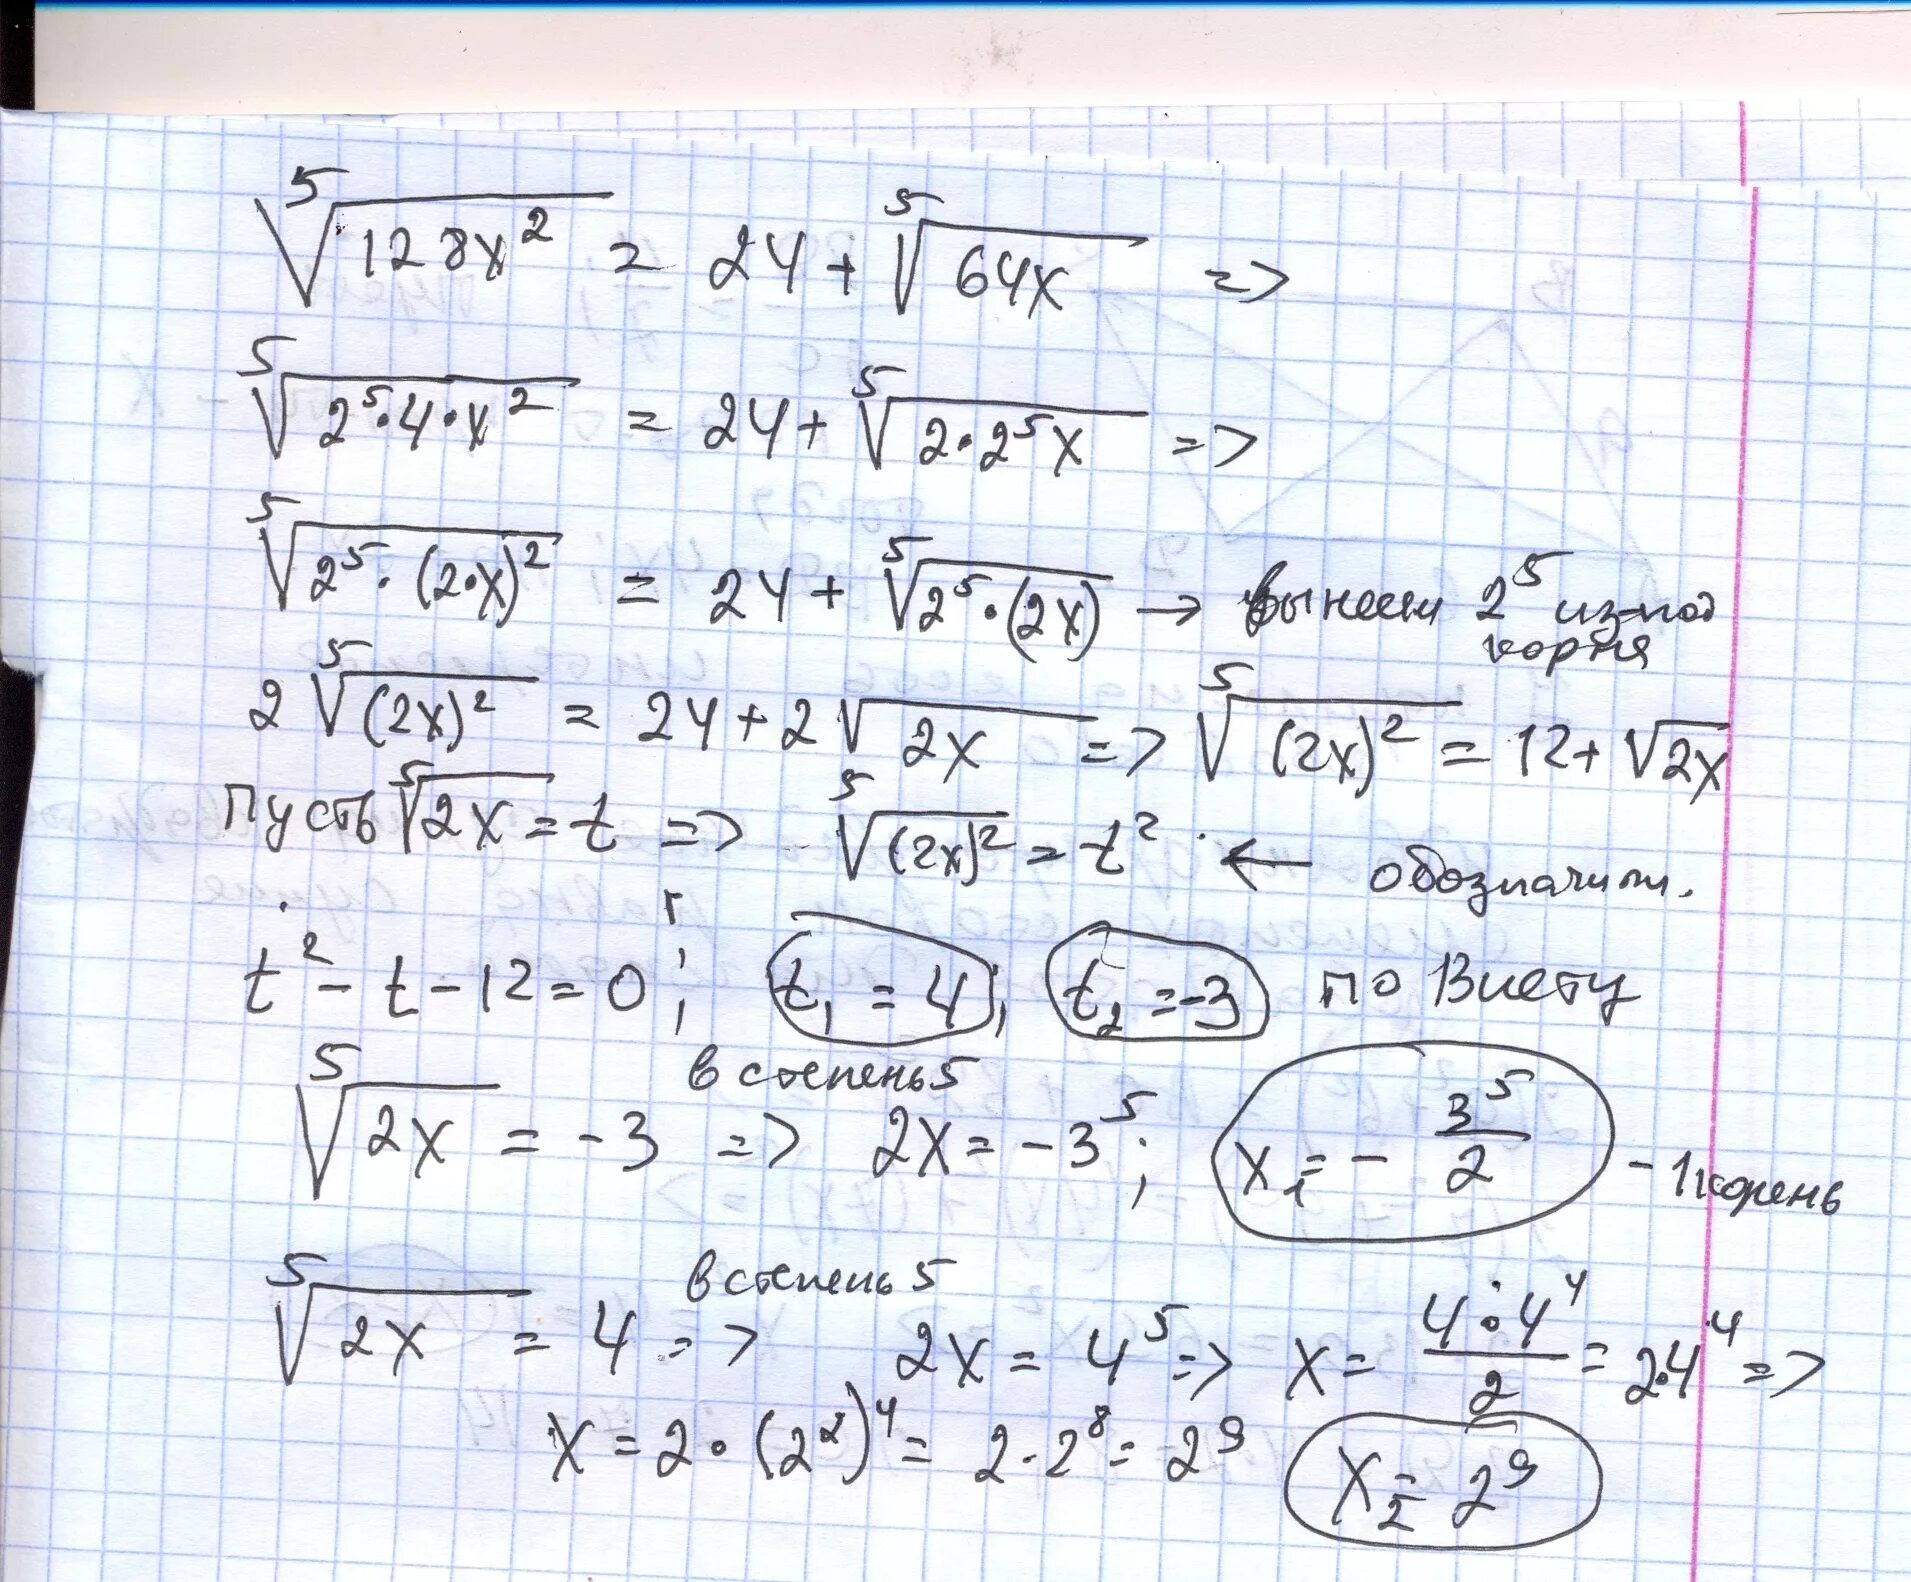 ⁵√128x² = 24 + ⁵√64x =>
⁵√2⁵·4·x² = 24 + ⁵√2·2⁵x =>
⁵√2⁵·(2·x)² = 24 + ⁵√2⁵·(2x) → вынесем 2⁵ из-под корня
2 ⁵√(2x)² = 24 + 2√2x => ⁵√(2x)² = 12 + √2x
Пусть ⁵√2x = t => ⁵√(2x)² = t² ← обозначили.
t² - t - 12 = 0; t₁ = 4; t₂ = -3 по Виету
в степень 5
⁵√2x = -3 => 2x = -3⁵; x₁ = - 3⁵/2 - 1 корень
в степень 5
⁵√2x = 4 => 2x = 4⁵ => x = 4·4⁴/2 = 2·4⁴ =>
x = 2·(2²)⁴ = 2·2⁸ = 2⁹ x₂ = 2⁹